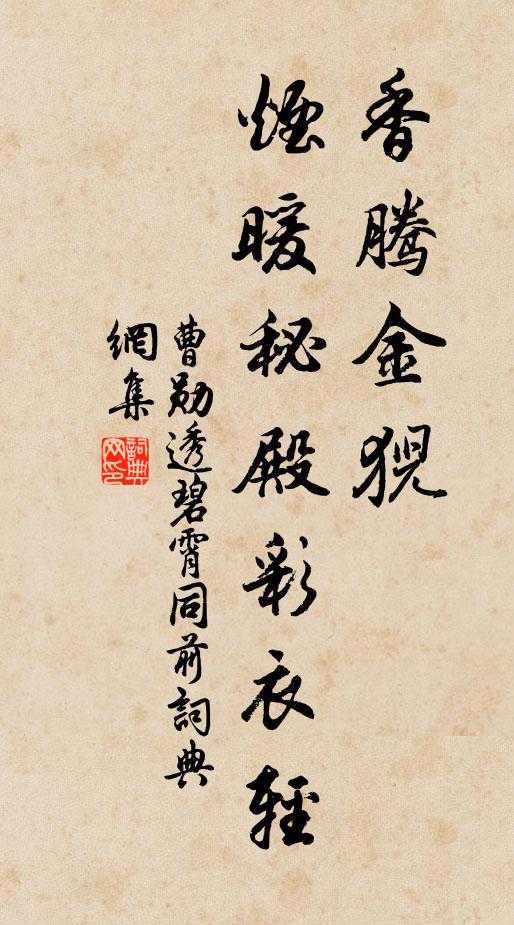 香騰金猊
煙暖秘殿彩衣輕
曹勛透碧霄同前詞典
網集
詞典
网印